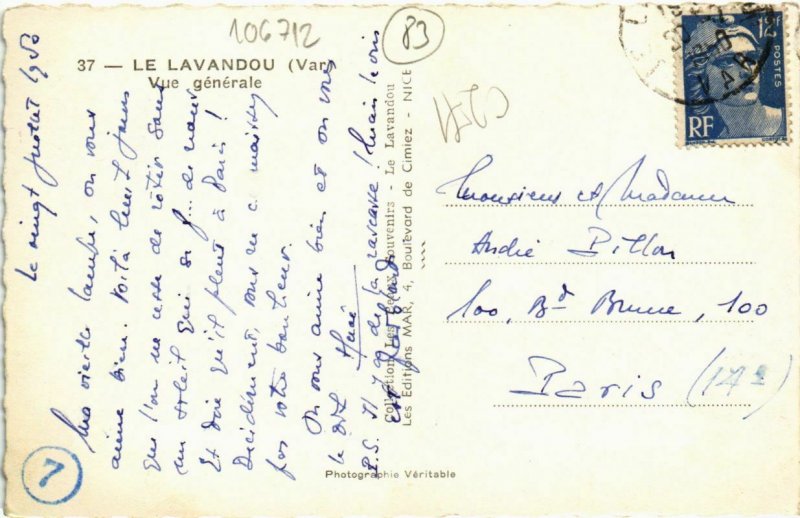 106712
83
37 — LE LAVANDOU (Var)
Vue générale
Le vingt Juillet 1950
Ma vieille on vous
aime bien. Voilà huit jours
que l'on ne cesse de rôtir sous
un soleil qui si j... de nous
Et dire qu'il pleut à Paris !
Décidément, vous ne
pas votre bonheur.
On vous aime bien et on vous
le dit
P.S. Il y a de la rascasse ! Mais le
est
Collection Les Beaux Souvenirs - Le Lavandou
Les Editions MAR, 4, Boulevard de Cimiez - NICE
12F
POSTES
RF
VAR
Monsieur et Madame
André Pillon
100, Bd Brune, 100
Paris (14e)
7
Photographie Véritable